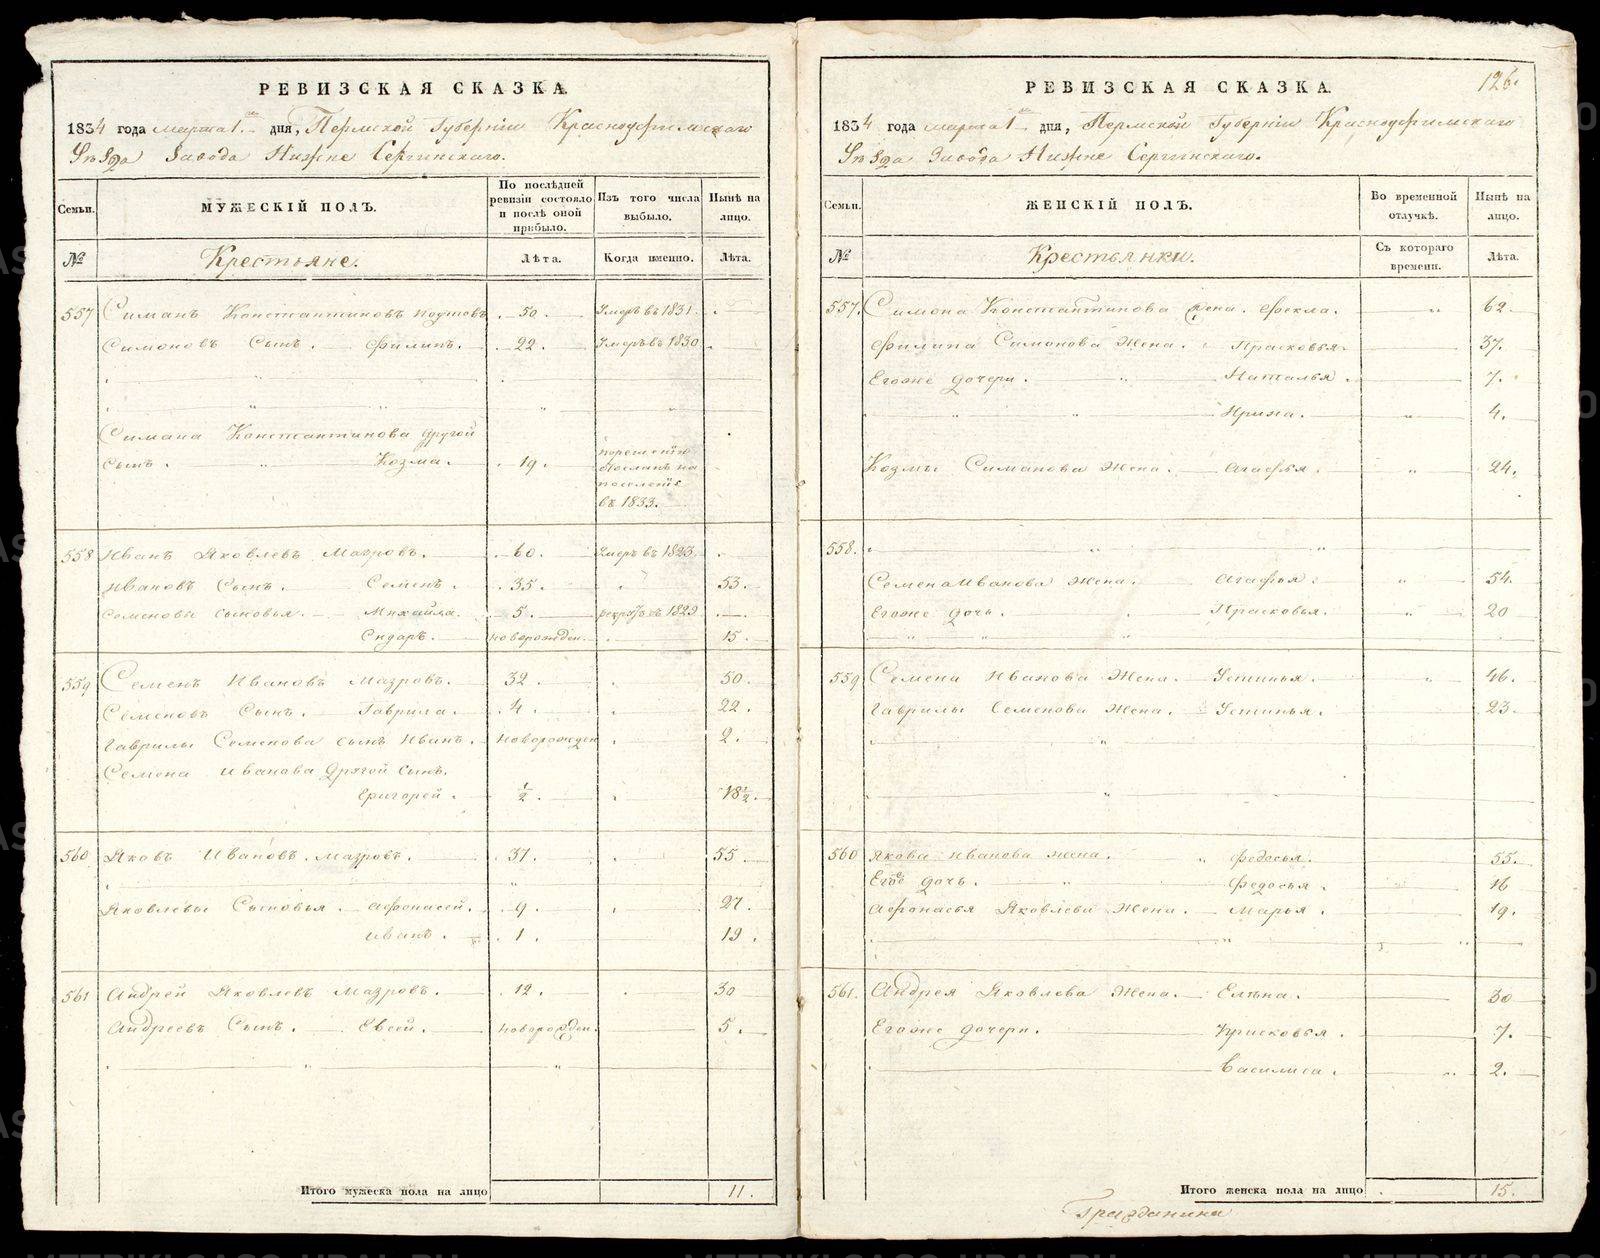 РЕВИЗСКАЯ СКАЗКА.
1834 года марта 1 дня, Пермской Губерніи Красноуфимскаго
Уѣзда Завода Нижне Сергинскаго.
Семьи. МУЖЕСКІЙ ПОЛЪ. По послѣдней ревизіи состояло и послѣ оной прибыло. Изъ того числа выбыло. Нынѣ на лицо.
№ Крестьяне. Лѣта. Когда именно. Лѣта.
557 Симанъ Константиновъ 50. Умеръ въ 1831.
Симоновъ Сынъ. Филипъ. 22. Умеръ въ 1830
Симана Константинова другой
сынъ. Козма. 19. посланъ на поселеніе въ 1833.
558 Иванъ Яковлевъ Мазровъ. 60. Умеръ въ 1823.
Ивановъ Сынъ. Семенъ. 35. 53.
Семеновы сыновья. Михайла. 5. въ 1829
Сидаръ. новорожден. 15.
559 Семенъ Ивановъ Мазровъ. 32. 50.
Семеновъ Сынъ. Гаврила. 4. 22.
Гаврилы Семенова сынъ Иванъ. новорожден 2.
Семена Иванова другой сынъ.
Григорей. ½. 18½.
560 Яковъ Ивановъ. Мазровъ. 37. 55.
Яковлевы Сыновья. Афонасей. 9. 27.
Иванъ. 1. 19.
561 Андрей Яковлевъ Мазровъ. 12. 30
Андреевъ Сынъ. Евсей. новорожден. 5.
Итого мужеска пола на лицо 11.
126.
РЕВИЗСКАЯ СКАЗКА.
1834 года марта 1 дня, Пермской Губерніи Красноуфимскаго
Уѣзда Завода Нижне Сергинскаго.
Семьи. ЖЕНСКІЙ ПОЛЪ. Во временной отлучкѣ. Нынѣ на лицо.
№ Крестьянки. Съ котораго времени. Лѣта.
557. Симона Константинова жена. Фекла. 62.
Филипа Симонова Жена. Прасковья. 37.
Егоже дочери. Наталья. 7.
Ирина. 4.
Козмы Симанова Жена. Агафья. 24.
558.
Семена Иванова жена. Агафья. 54.
Егоже дочь. Прасковья. 20
559 Семена Иванова Жена. Устинья. 46.
Гаврилы Семенова Жена. Устинья. 23.
560 Якова Иванова жена. Федосья. 55.
Егоже дочь. Федосья. 16
Афонасья Яковлева Жена. Марья. 19.
561. Андрея Яковлева Жена. Елѣна. 30
Егоже дочери. Прасковья. 7.
Василиса. 2.
Итого женска пола на лицо 15.